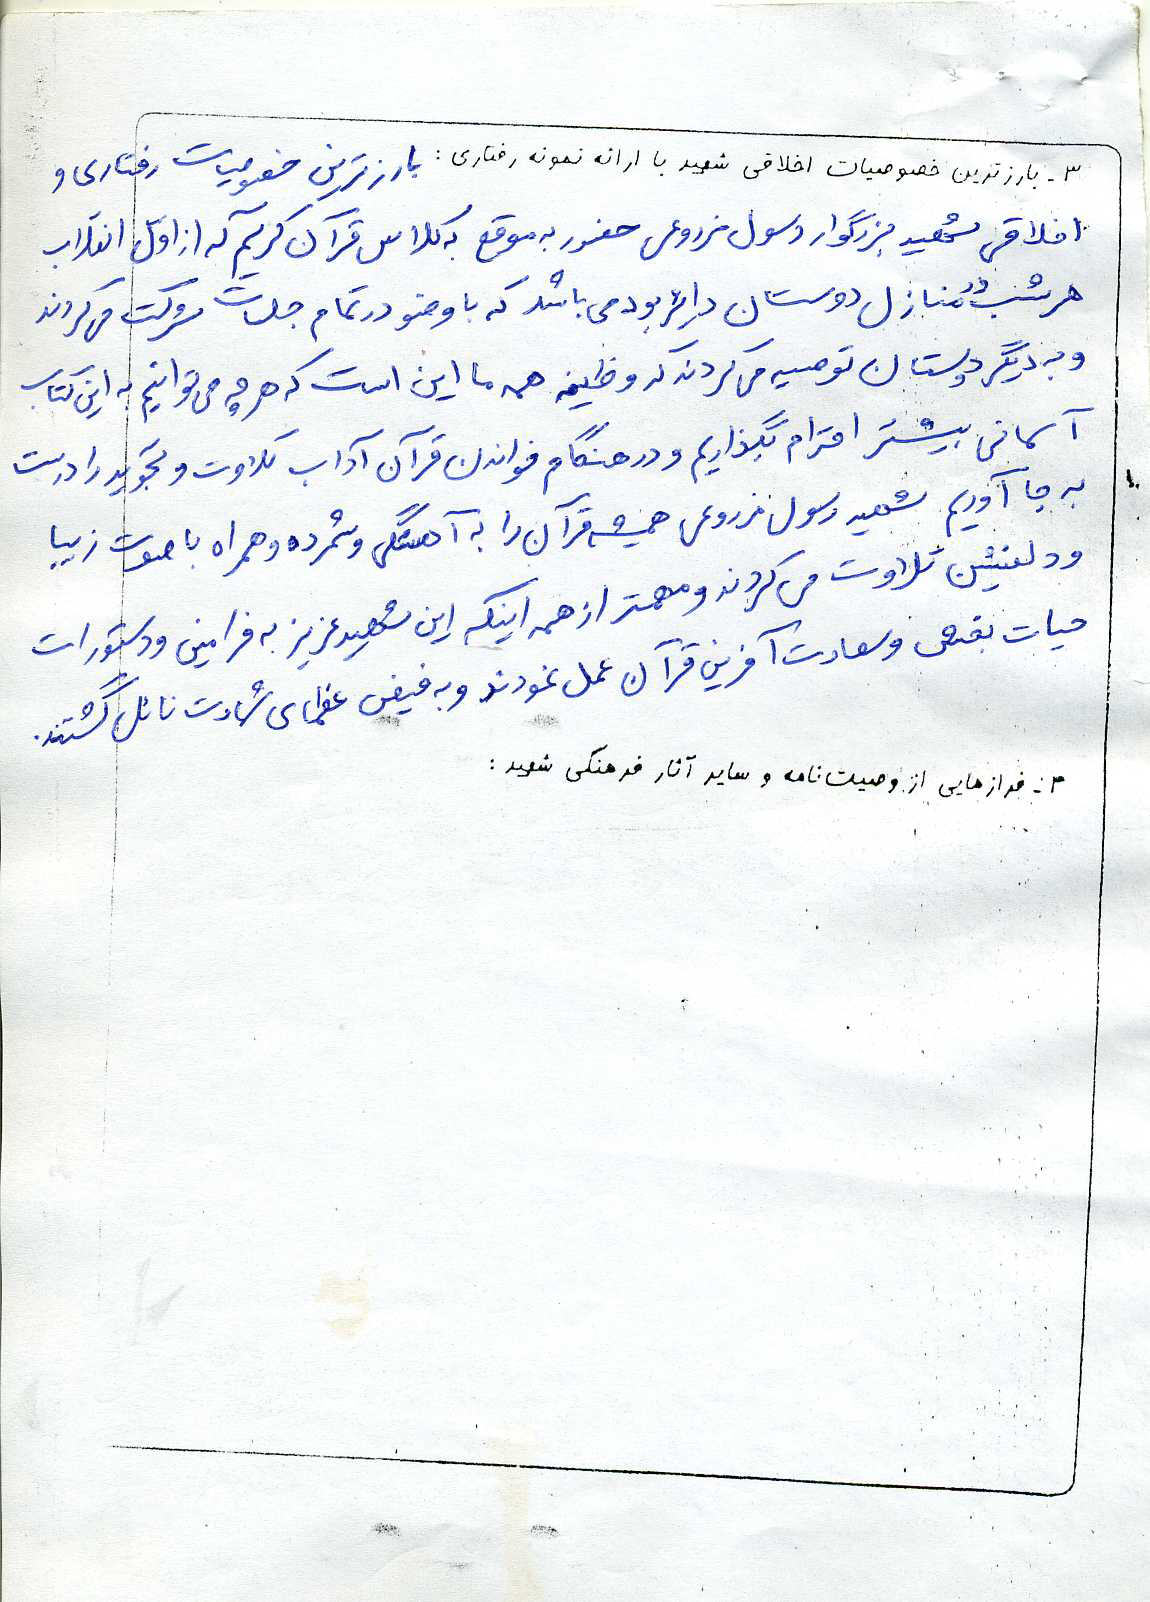 ۳- بارزترین خصوصیات اخلاقی شهید با ارائه نمونه رفتاری: بارزترین خصوصیت رفتاری و
اخلاقی شهید بزرگوار رسول مزروعی حضور به موقع به کلاس قرآن کریم که از اول انقلاب
هر شب در منازل دوستان دایر بوده می باشد که با وضو در تمام جلسات شرکت می کردند
و به دیگر دوستان توصیه می کردند که وظیفه همه ما این است که هر چه می توانیم به این کتاب
آسمانی بیشتر احترام بگذاریم و در هنگام خواندن قرآن آداب تلاوت و تجوید را درست
به جا آوریم شهید رسول مزروعی همیشه قرآن را به آهستگی و شمرده و همراه با صوت زیبا
و دلنشین تلاوت می کردند و مهمتر از همه اینکه این شهید عزیز به فرامین و دستورات
حیات بخش و سعادت آفرین قرآن عمل نمودند و به فیض عظمای شهادت نائل گشتند.
۴- فرازهایی از وصیت‌نامه و سایر آثار فرهنگی شهید: